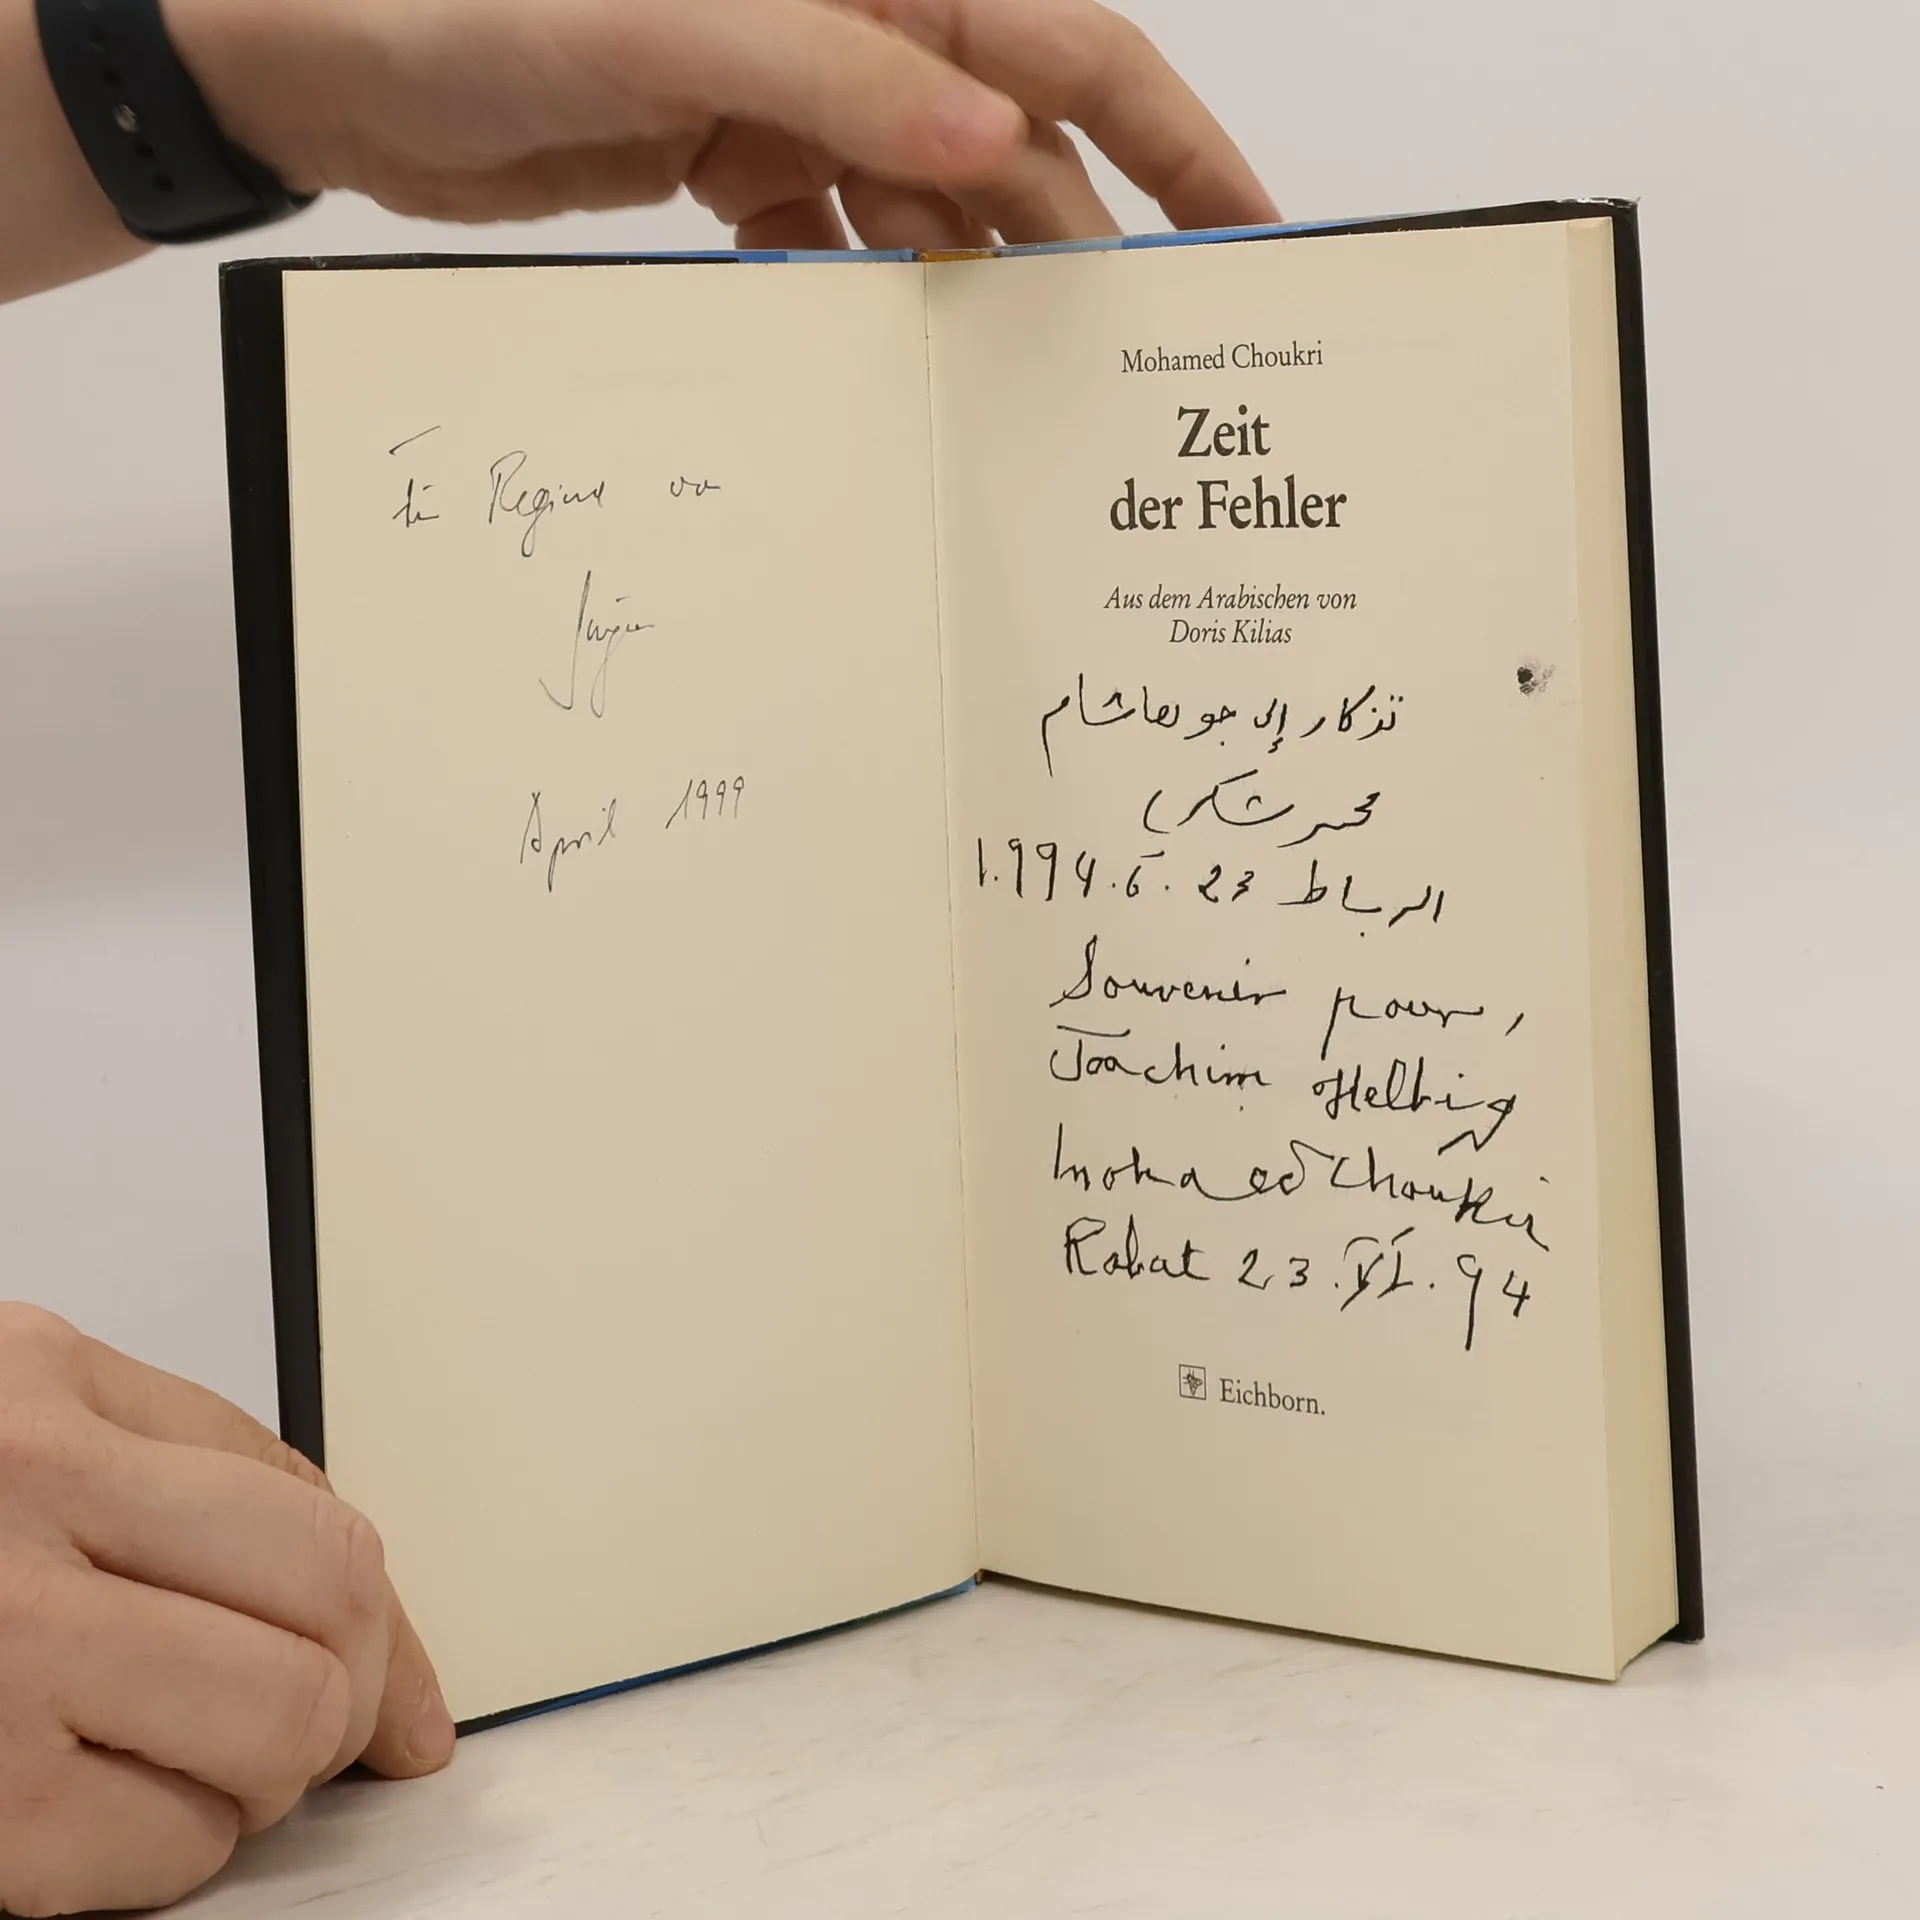 Für Regina von
Jürgen
April 1999
Mohamed Choukri
Zeit
der Fehler
Aus dem Arabischen von
Doris Kilias
تذكار إلى
محمد شكري
الرباط 23 .6.1.994
Souvenir pour,
Joachim Helbig
Mohamed Choukri
Rabat 23.VI.94
Eichborn.